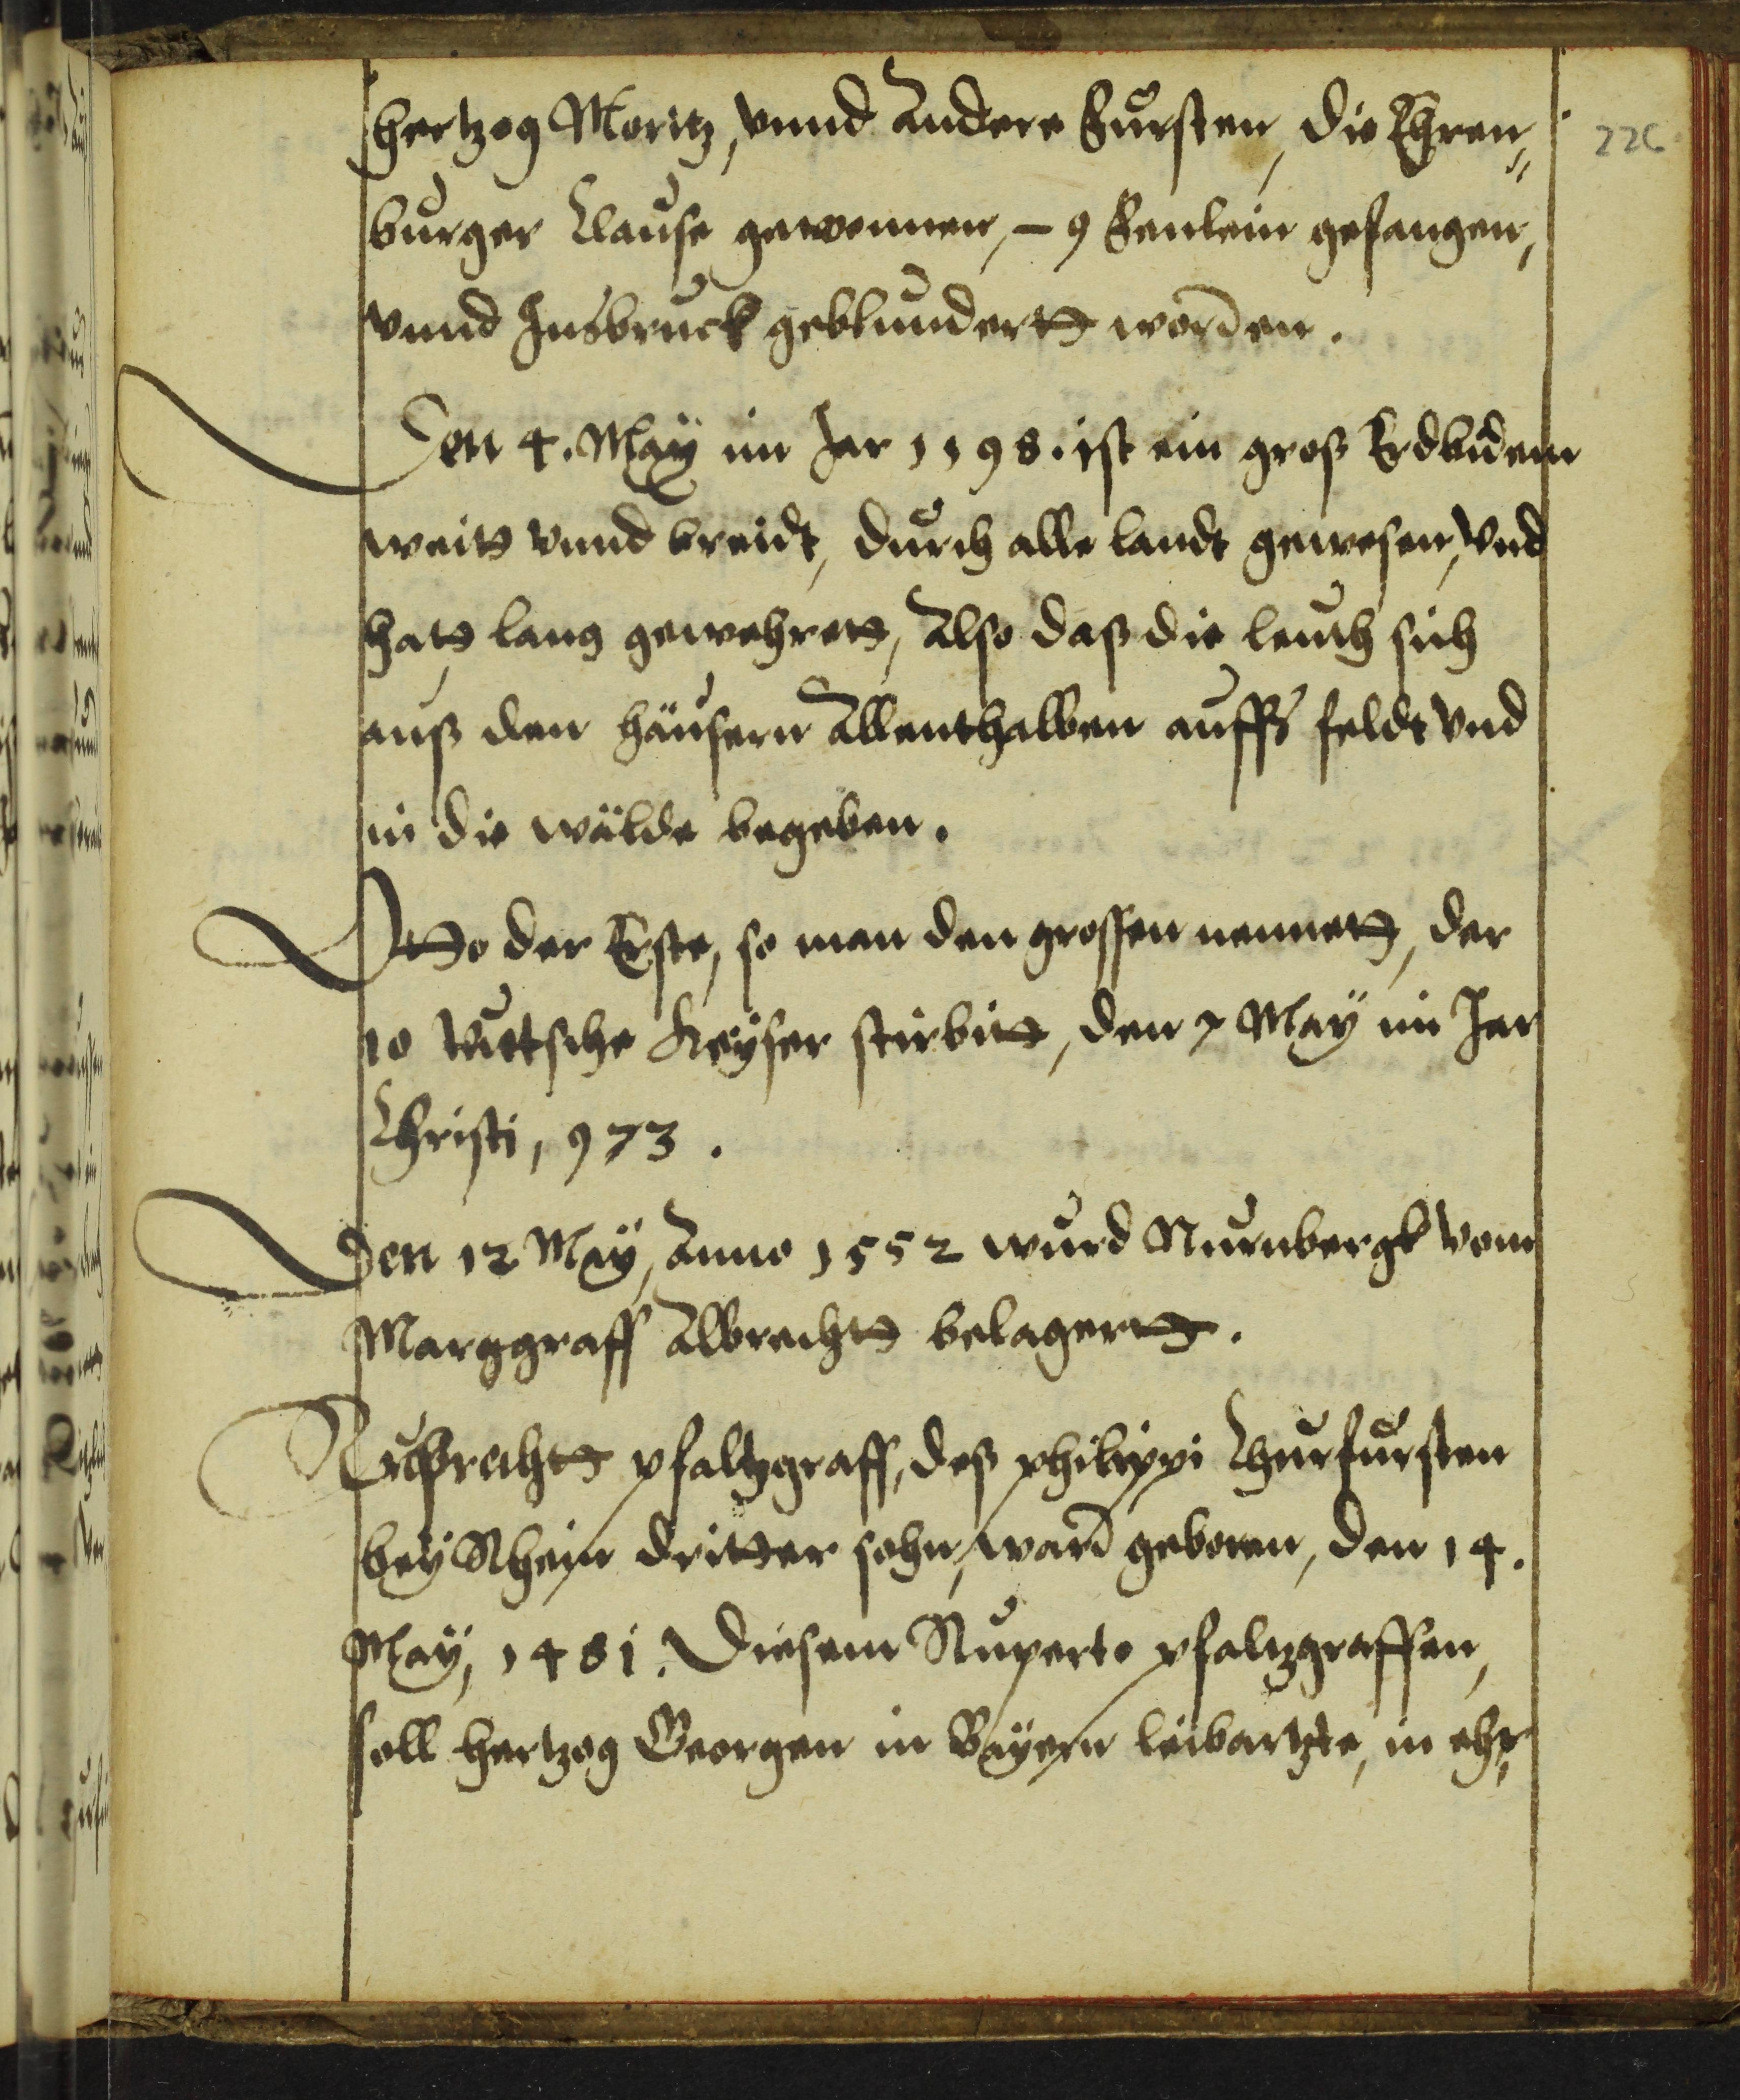 hertzog Moritz, vnnd Andere Fursten, die Ehren⸗ 226
burger Clause gewonnen, – 9 Fenlein gefangen,
vnnd Insbruck geblundertt worden.
Den 4. Maÿ im Jar 1198. ist ein groß Erdbidem
weitt vnnd breidt, durch alle landt gewesen, vnd
hatt lang gewehrett, Also daß die leuth sich
auß den häusern Allenthalben auffs feldt vnd
in die wälde begeben.
Otto der Erste, so man den grossen nennett, der
10 tuttsche Keÿser stirbitt, den 7 Maÿ im Jar
Christi, 973.
Den 12 Maÿ, Anno 1552 wurd Nurnbergk vom
Marggraff Albrechtt belagertt.
Ruprechtt pfaltzgraff, deß philippi Churfursten
beÿ Rhein dritter sohn, ward geboren, den 14.
Maÿ, 1481. Diesem Ruperto pfaltzgraffen,
soll hertzog Georgen in Baÿern leibartzte, in ehr⸗